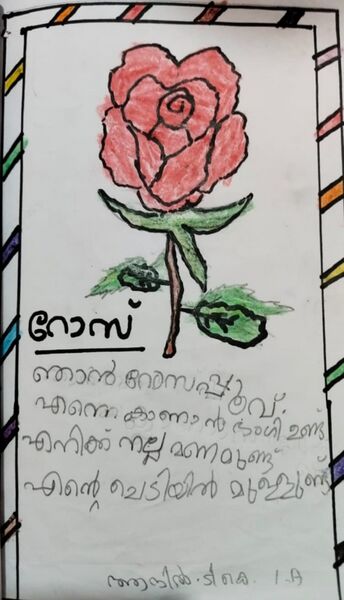 റോസ്
ഞാൻ റോസപ്പൂവ്.
എന്നെ കാണാൻ ഭംഗി ഉണ്ട്
എനിക്ക് നല്ല മണമുണ്ട്
എന്റെ ചെടിയിൽ മുള്ളുണ്ട്
ടി കെ. 1.A